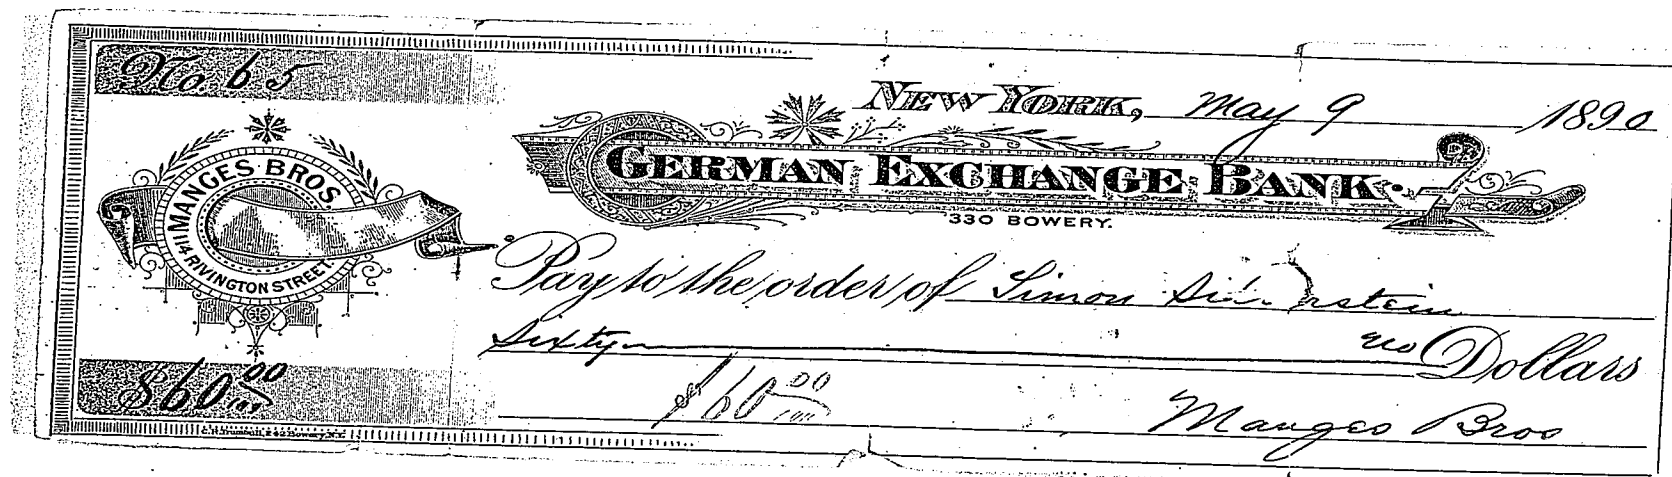 No. 65
MANGES BROS.
RIVINGTON STREET.
$60 00/100
NEW YORK, May 9 1890
GERMAN EXCHANGE BANK.
330 BOWERY.
Pay to the order of Simon
Sixty no Dollars
$60 00/100
Manges Bros